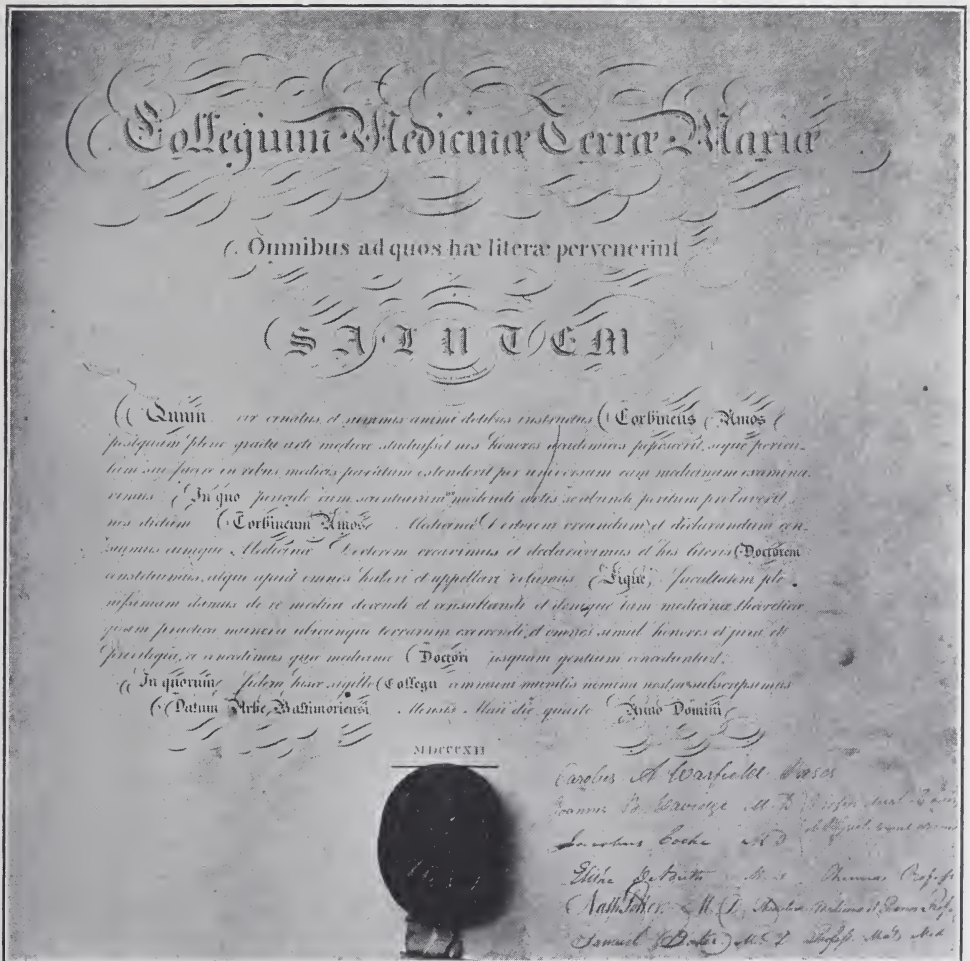 Collegium Medicinæ Terræ Mariæ
Omnibus ad quos hæ literæ pervenerint
SALUTEM
Quum vir ornatus et summis animi dotibus instructus Corbineus Amos
postquam plene arti medicæ studuisset nos honores academicos
suo facere in rebus medicis paratum ostenderit per universam eam medicinam examina
vimus In quo periculo cum medendi artis peritum
nos dictum Corbineum Amos Medicinæ Doctorem creandum et declarandum cen-
suimus eumque Medicinæ Doctorem creavimus et declaravimus et his literis Doctorem
constituimus, atque apud omnes haberi et appellari volumus Eique facultatem ple
nissimam damus de re medica docendi et consultandi et denique tam medicinæ theoretica
quam practica munera ubicunque terrarum exercendi, et omnes simul honores et jura et
privilegia, ei concedimus quæ medicinæ Doctori usquam gentium conceduntur.
In quorum fidem hisce sigillo Collegii communi munitis nomina nostra subscripsimus
Datum Urbe Baltimoriensi Mensis Maii die quarto Anno Domini
MDCCCXII
Carolus A Warfield
Joannes B. Davidge M. D.
Jacobus Cocke M D
Elisha DeButts M.D. Profess
Nath Potter. M.D.
Samuel Baker M.D. Profess. Mat. Med.